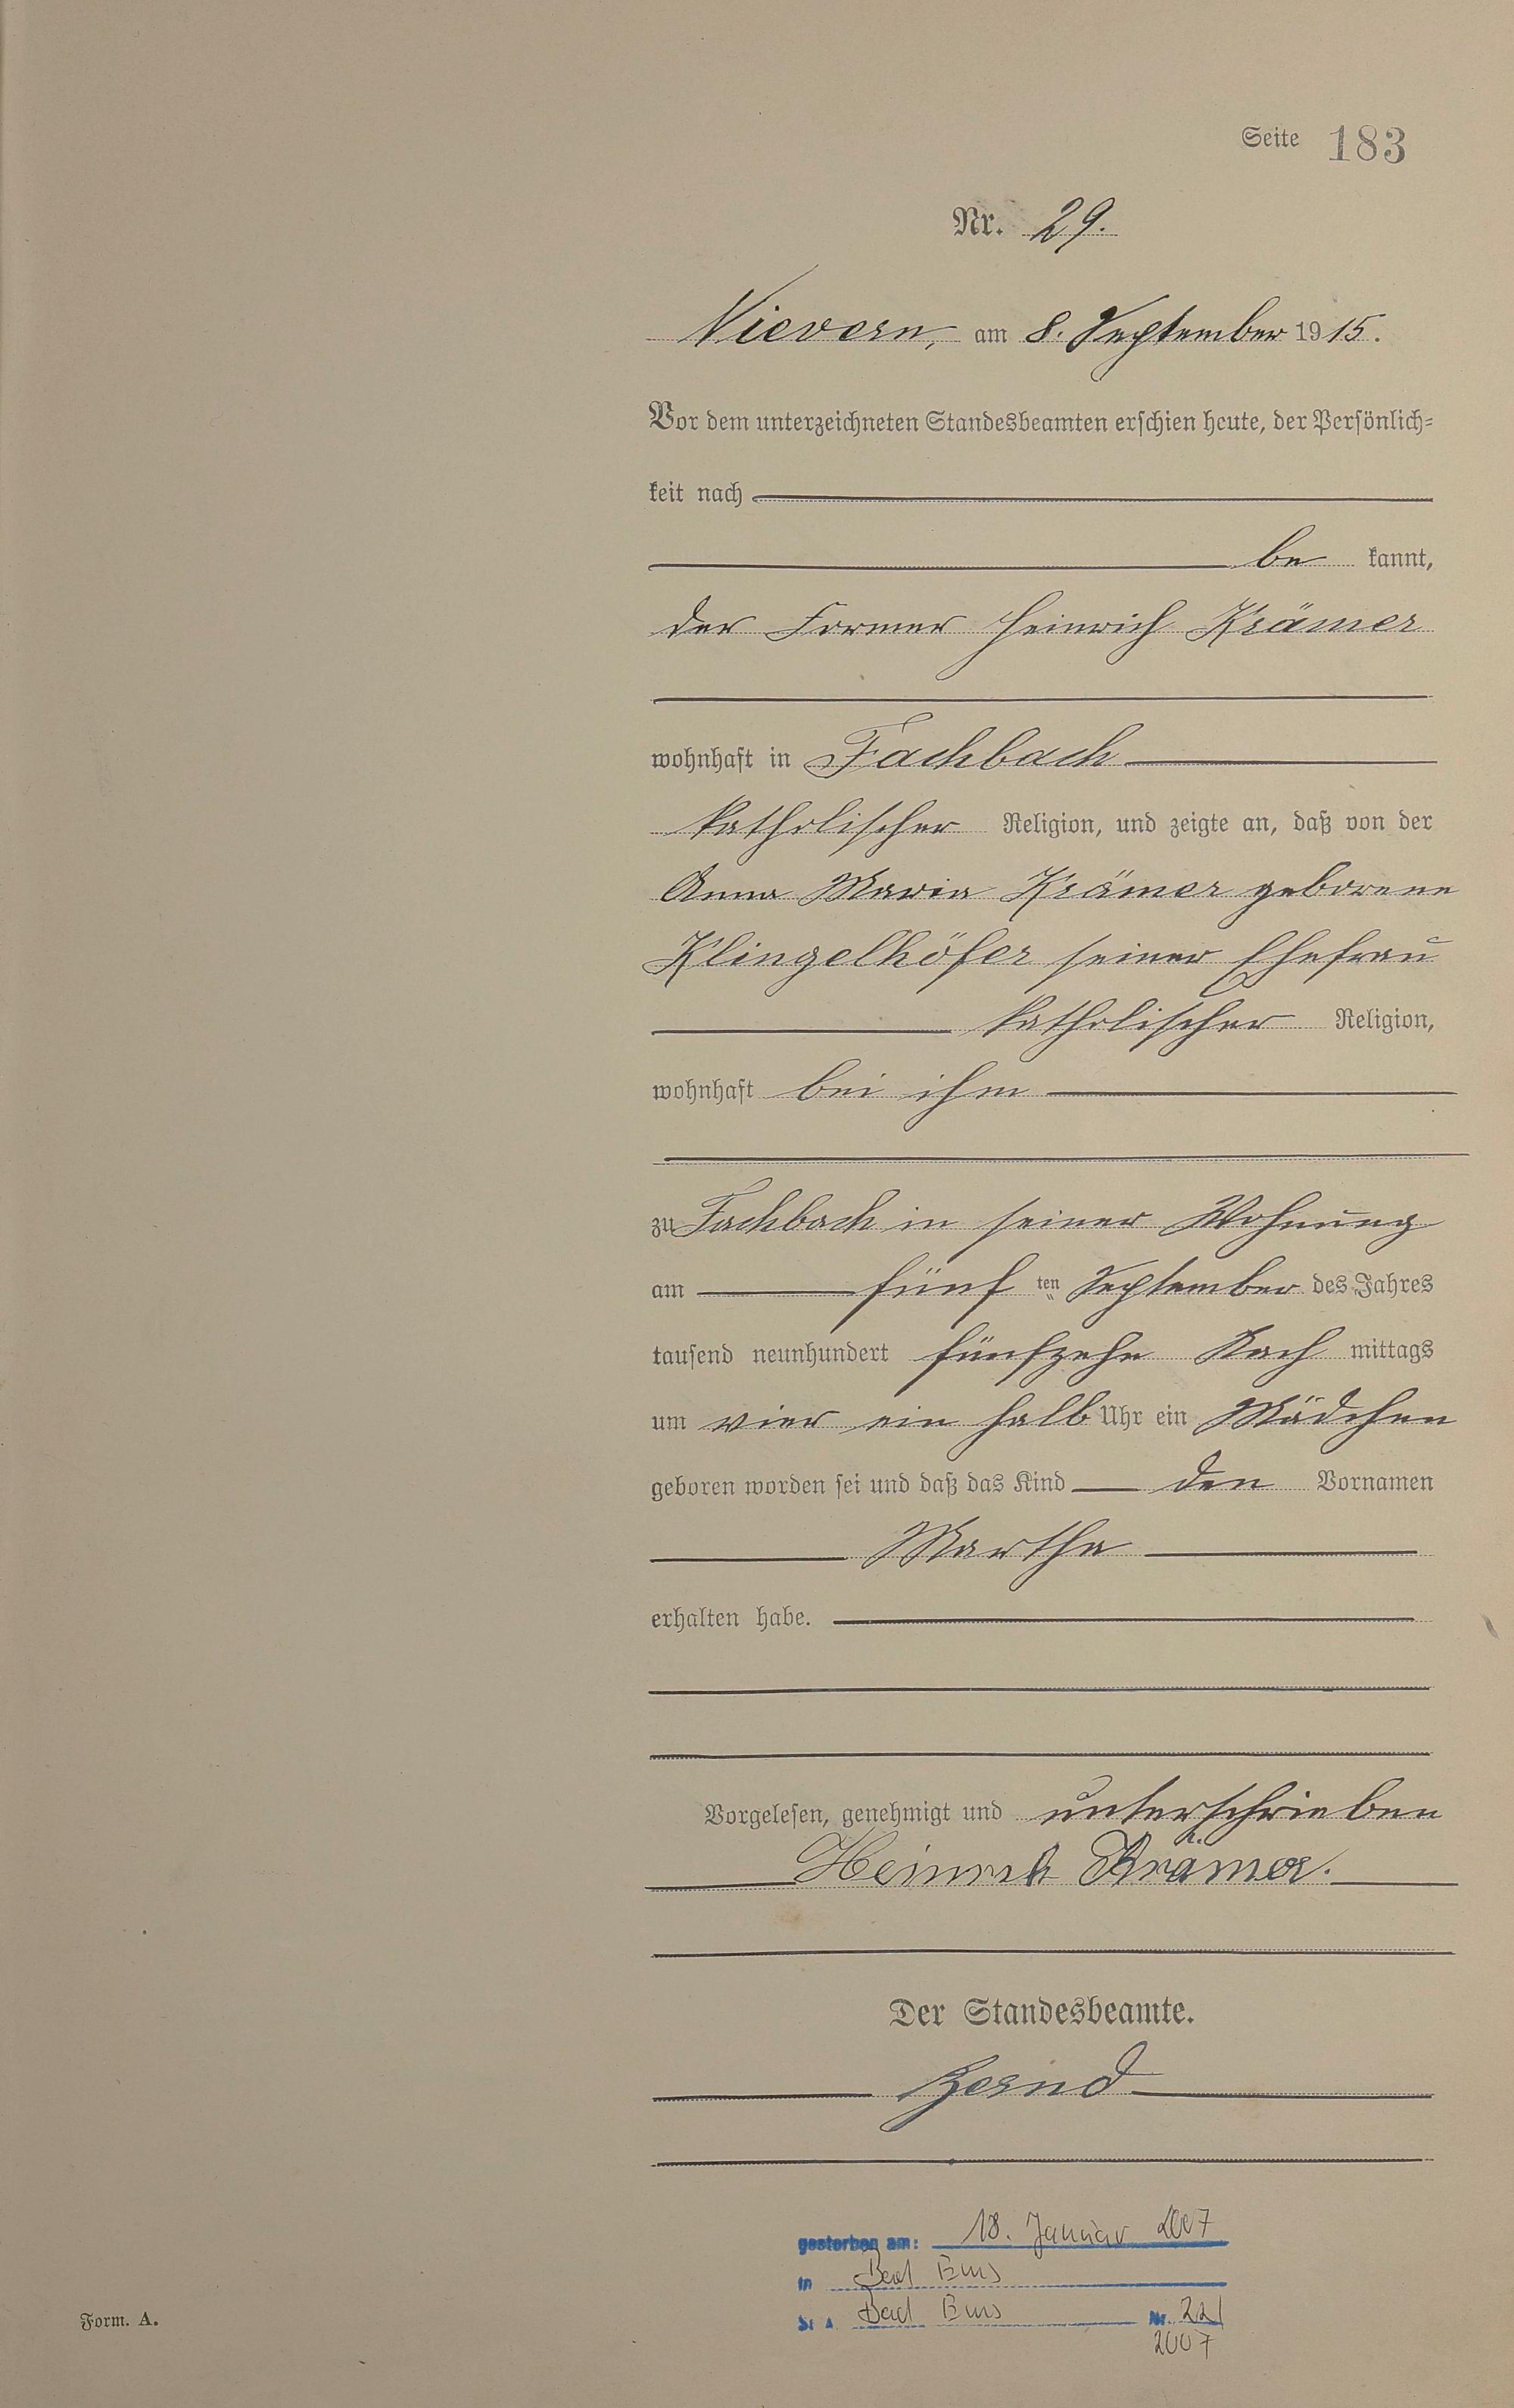 Seite 183
Nr. 29.
Nievern, am 8. September 1915.
Vor dem unterzeichneten Standesbeamten erschien heute, der Persönlich=
keit nach
be kannt,
der Former Heinrich Krämer
wohnhaft in Fachbach
katholischer Religion, und zeigte an, daß von der
Anna Maria Krämer geborene
Klingelhöfer seiner Ehefrau
katholischer Religion,
wohnhaft bei ihm
zu Fachbach in seiner Wohnung
am fünf ten September des Jahres
tausend neunhundert fünfzehn Nach mittags
um vier ein halb Uhr ein Mädchen
geboren worden sei und daß das Kind den Vornamen
Martha
erhalten habe.
Vorgelesen, genehmigt und unterschrieben
Heinrich Krämer.
Der Standesbeamte.
gestorben am: 18. Januar 2007
in Bad Ems
St A. Bad Ems Nr. 22/
2007
Form. A.